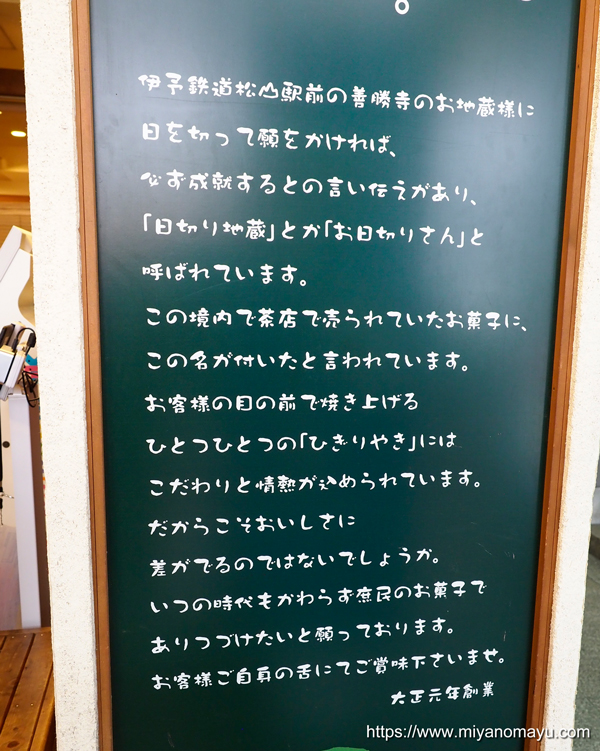 伊予鉄道松山駅前の善勝寺のお地蔵様に
日を切って願をかければ、
必ず成就するとの言い伝えがあり、
「日切り地蔵」とか「お日切りさん」と
呼ばれています。
この境内で茶店で売られていたお菓子に、
この名が付いたと言われています。
お客様の目の前で焼き上げる
ひとつひとつの「ひぎりやき」には
こだわりと情熱が込められています。
だからこそおいしさに
差がでるのではないでしょうか。
いつの時代もかわらず庶民のお菓子で
ありつづけたいと願っております。
お客様ご自身の舌にてご賞味下さいませ。
大正元年創業
https://www.miyanomayu.com